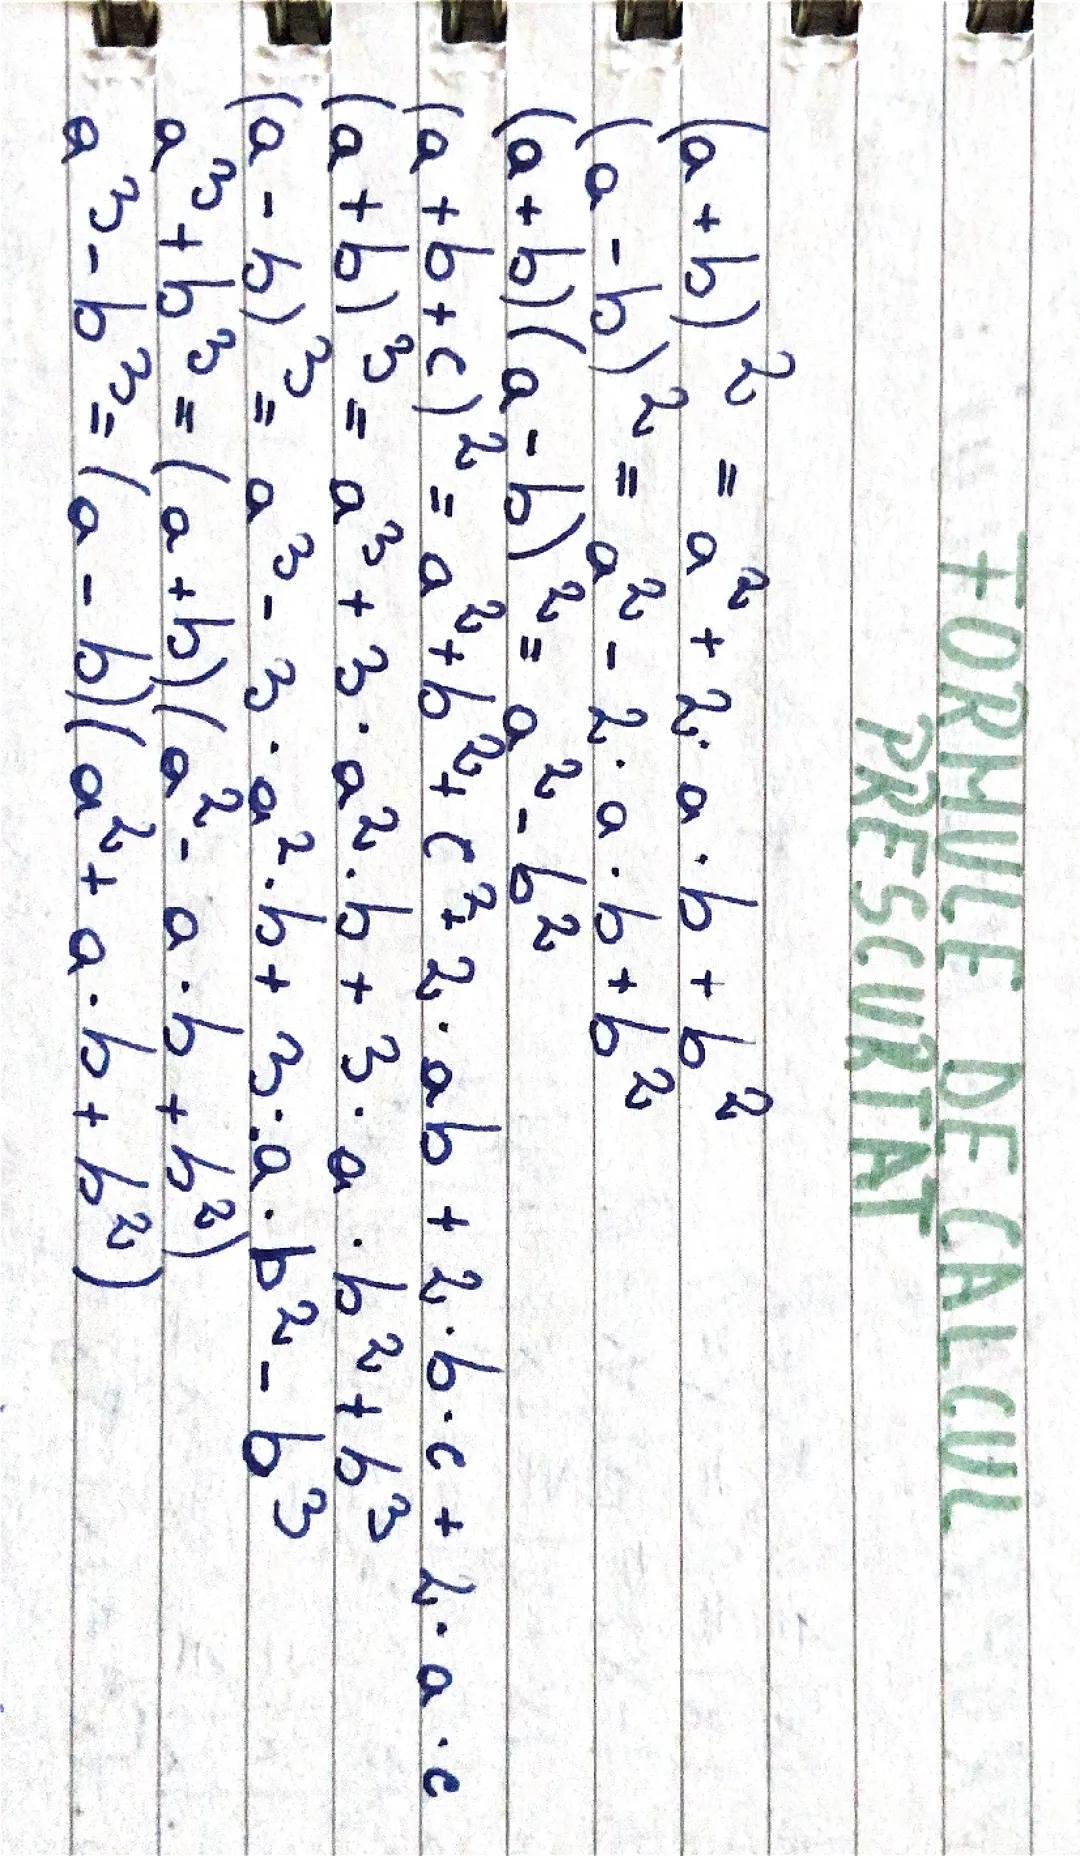 FORMULE DE CALCUL
PRESCURTAT
(a+b)² = a² + 2·a·b + b²
(a-b)² = a² - 2·a·b + b²
(a+b)(a-b)² = a² - b²
(a+b+c)² = a² + b² + c² + 2·ab + 2·b·c + 2·a·c
(a+b)³ = a³ + 3·a²·b + 3·a·b² + b³
(a-b)³ = a³ - 3·a²·b + 3·a·b² - b³
a³ + b³ = (a+b)(a² - a·b + b²)
a³ - b³ = (a-b)(a² + a·b + b²)